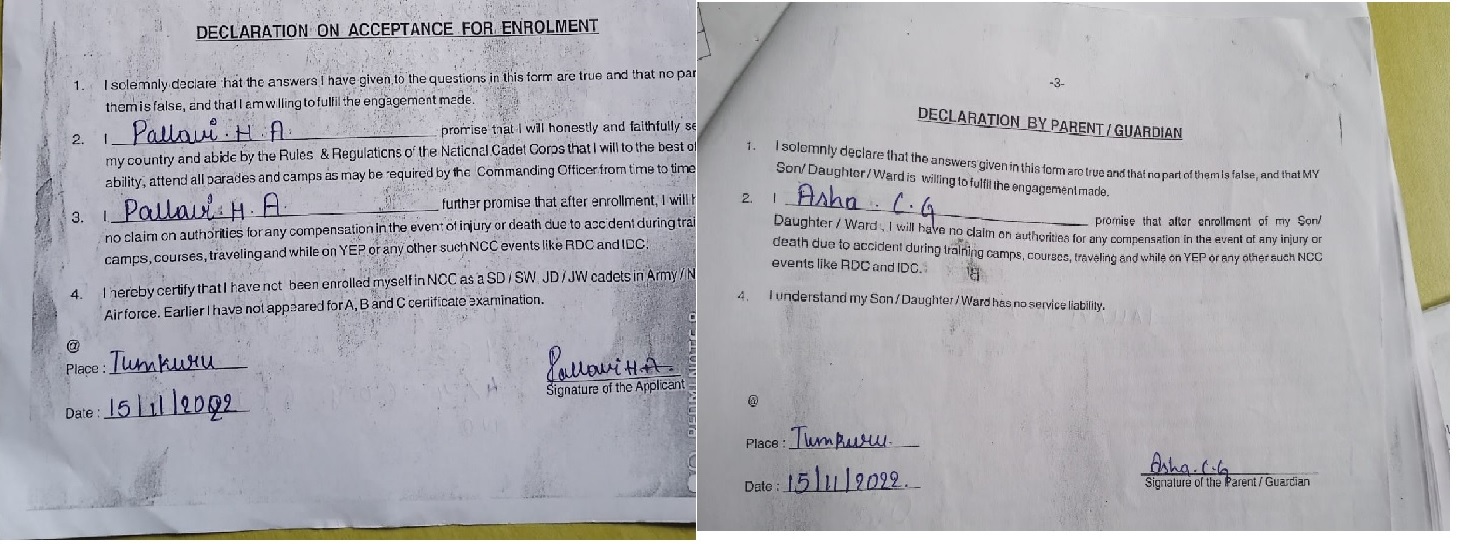 DECLARATION ON ACCEPTANCE FOR ENROLMENT
1. I solemnly declare that the answers I have given to the questions in this form are true and that no par
them is false, and that I am willing to fulfil the engagement made.
2. I Pallavi. H. A. promise that I will honestly and faithfully se
my country and abide by the Rules & Regulations of the National Cadet Corps that I will to the best of
ability, attend all parades and camps as may be required by the Commanding Officer from time to time
3. I Pallavi. H. A. further promise that after enrollment, I will h
no claim on authorities for any compensation in the event of injury or death due to accident during trai
camps, courses, traveling and while on YEP or any other such NCC events like RDC and IDC.
4. I hereby certify that I have not been enrolled myself in NCC as a SD / SW JD / JW cadets in Army / N
Airforce. Earlier I have not appeared for A, B and C certificate examination.
@
Place : Tumkuru
Pallavi H.A.
Signature of the Applicant
Date : 15/11/2022
-3-
DECLARATION BY PARENT / GUARDIAN
1. I solemnly declare that the answers given in this form are true and that no part of them is false, and that MY
Son/ Daughter / Ward is willing to fulfil the engagement made.
2. I Asha. C. G promise that after enrollment of my Son/
Daughter / Ward , I will have no claim on authorities for any compensation in the event of any injury or
death due to accident during training camps, courses, traveling and while on YEP or any other such NCC
events like RDC and IDC.
4. I understand my Son / Daughter / Ward has no service liability.
@
Place : Tumkuru.
Asha. C. G
Date : 15/11/2022.
Signature of the Parent / Guardian